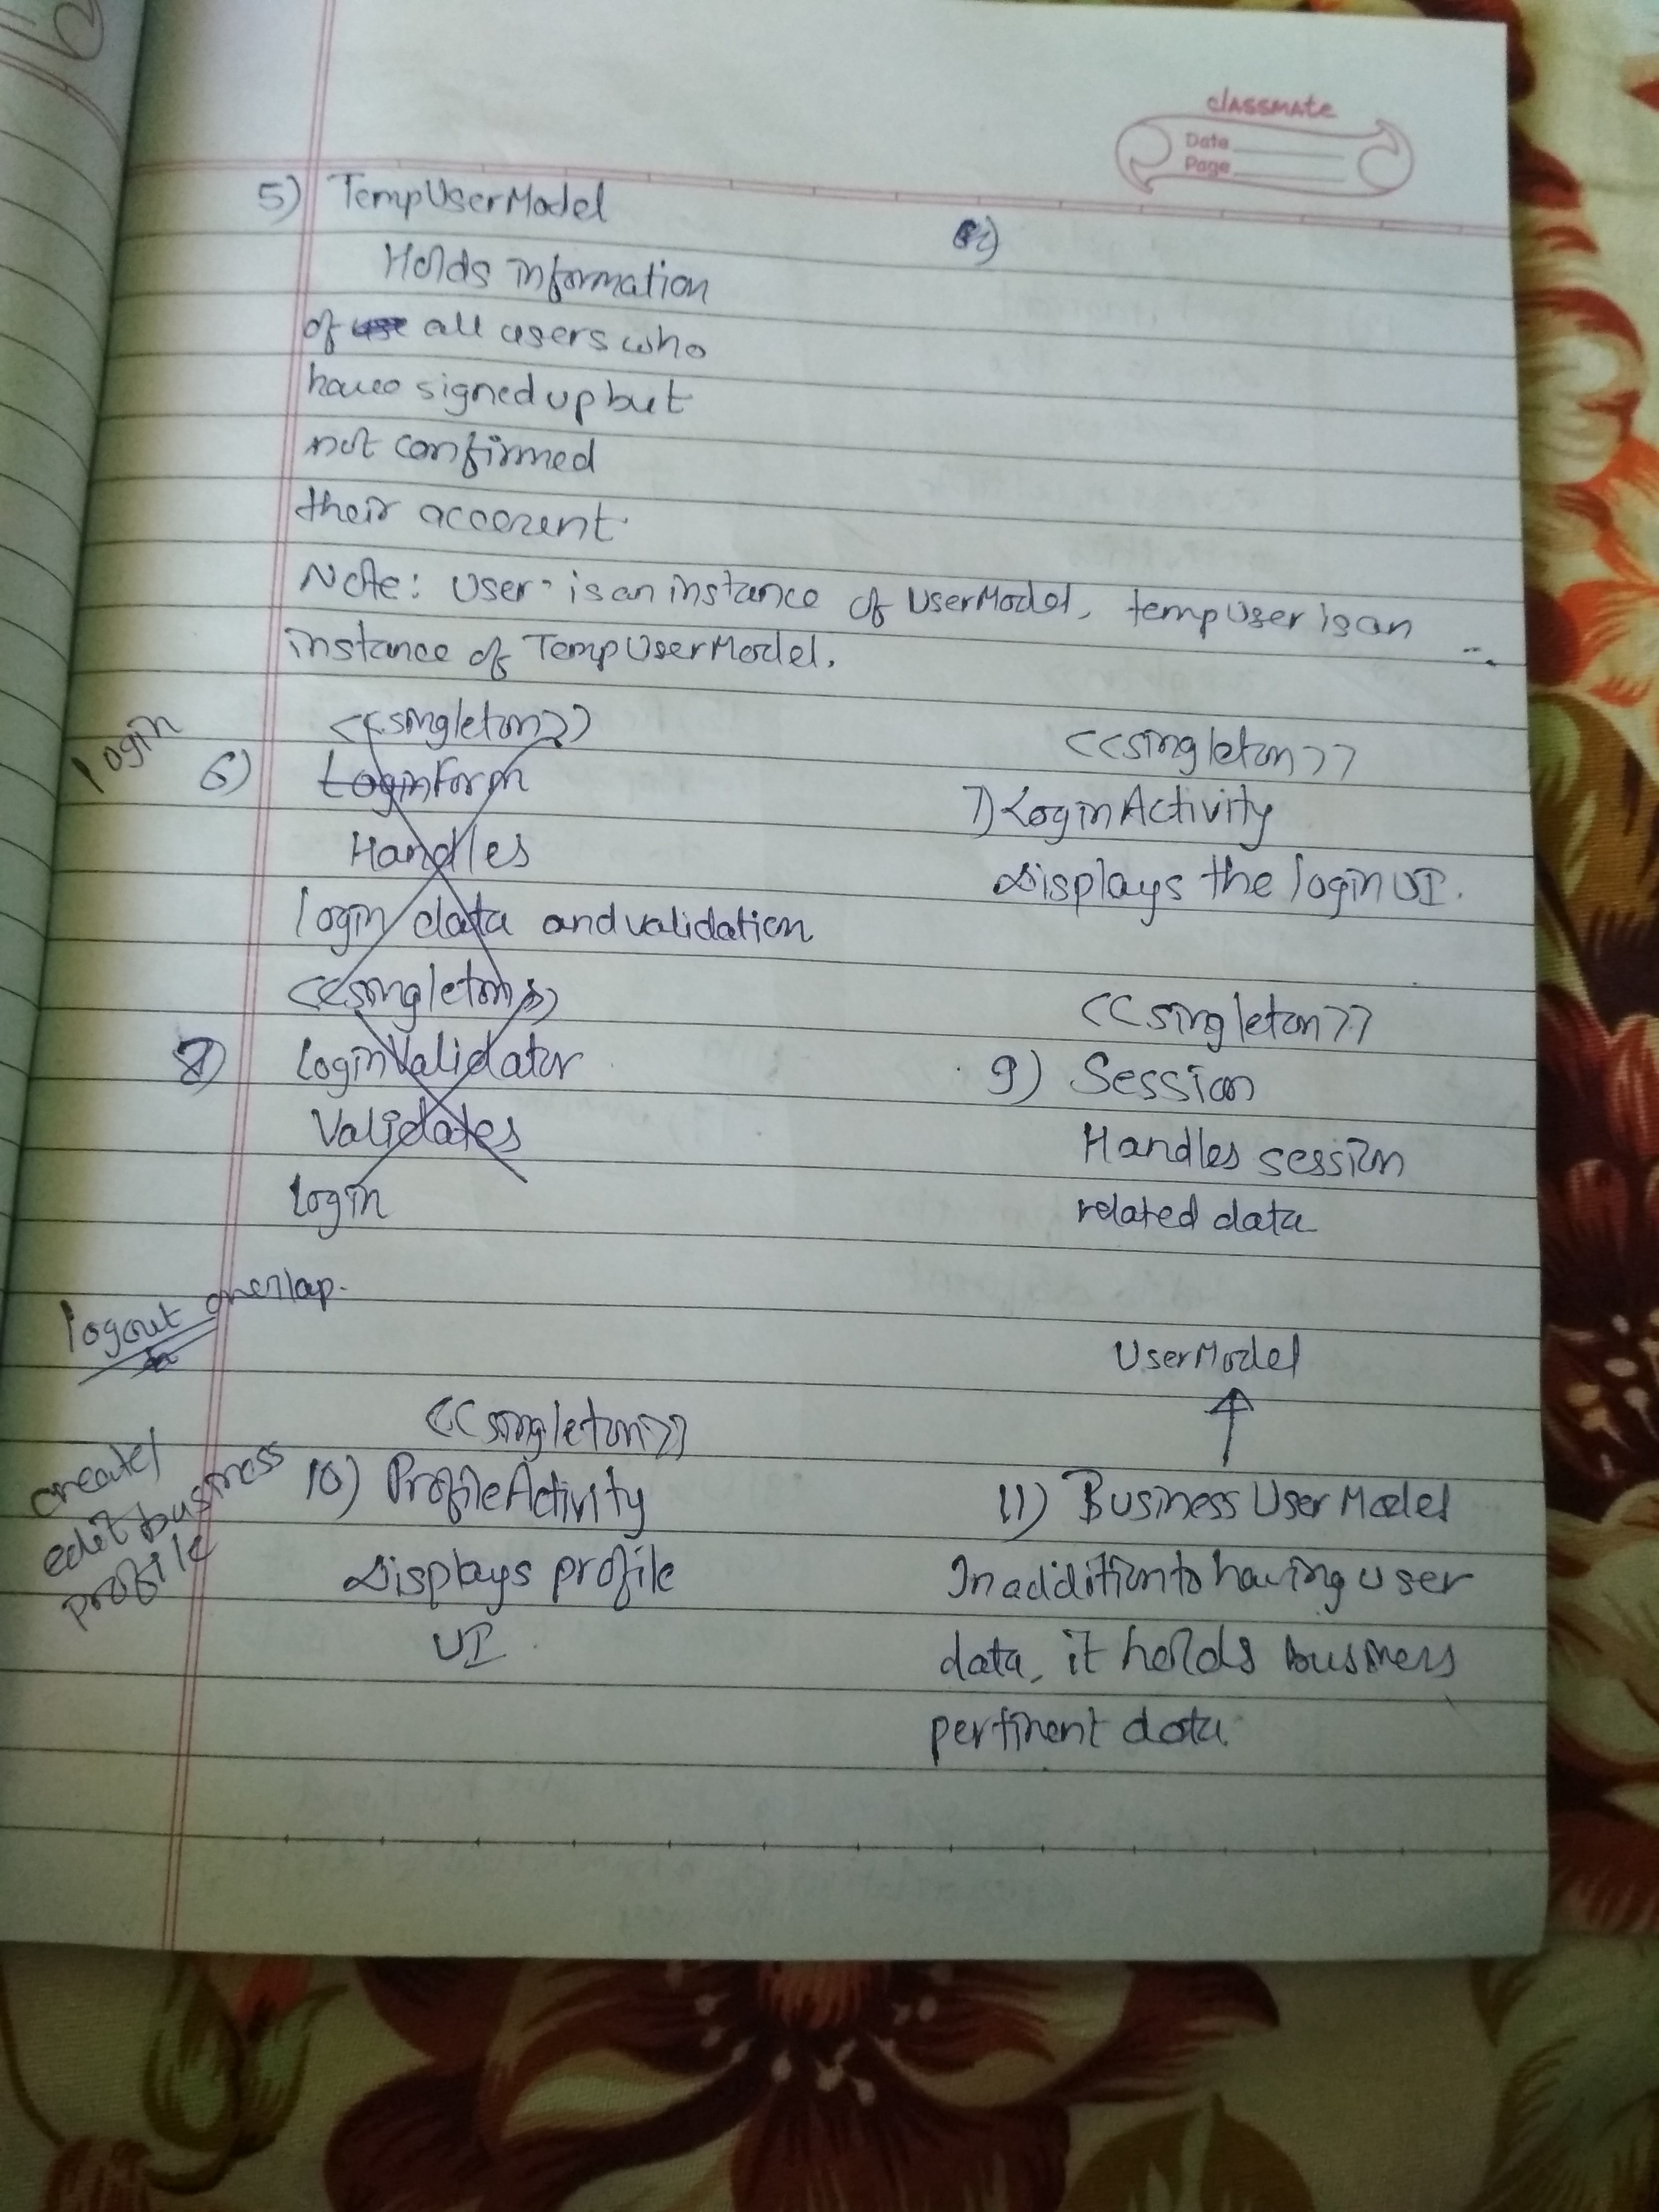 classmate
Date
Page
5) TempUserModel
Holds information
of all users who
have signed up but
not confirmed
their account
Note: User is an instance of UserModel, tempUser is an
instance of TempUserModel.
login
<<singleton>>
6) LoginForm
Handles
login data and validation
<<singleton>>
7) LoginActivity
Displays the login UI.
<<singleton>>
8) LoginValidator
Validates
login
<<singleton>>
9) Session
Handles session
related data
logout overlap.
create/
edit business
profile
<<singleton>>
10) ProfileActivity
Displays profile
UI
UserModel
11) BusinessUserModel
In addition to having user
data, it holds business
pertinent data